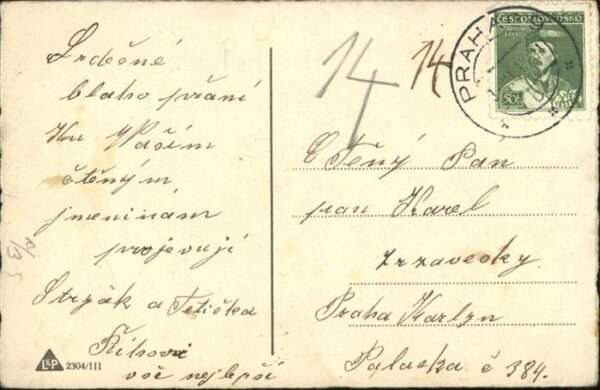 Srdečné
blaho přání
Ku Vaším
ctěným
jmeninám
projevují
Strýák a Tetička
Říhovi
vše nejlepší
L&P 2304/III
14 14
PRAHA
ČESKOSLOVENSKO
50h
Ctěný Pan
pan Karel
Zrzavecky
Praha Karlyn
Palacka č 384.